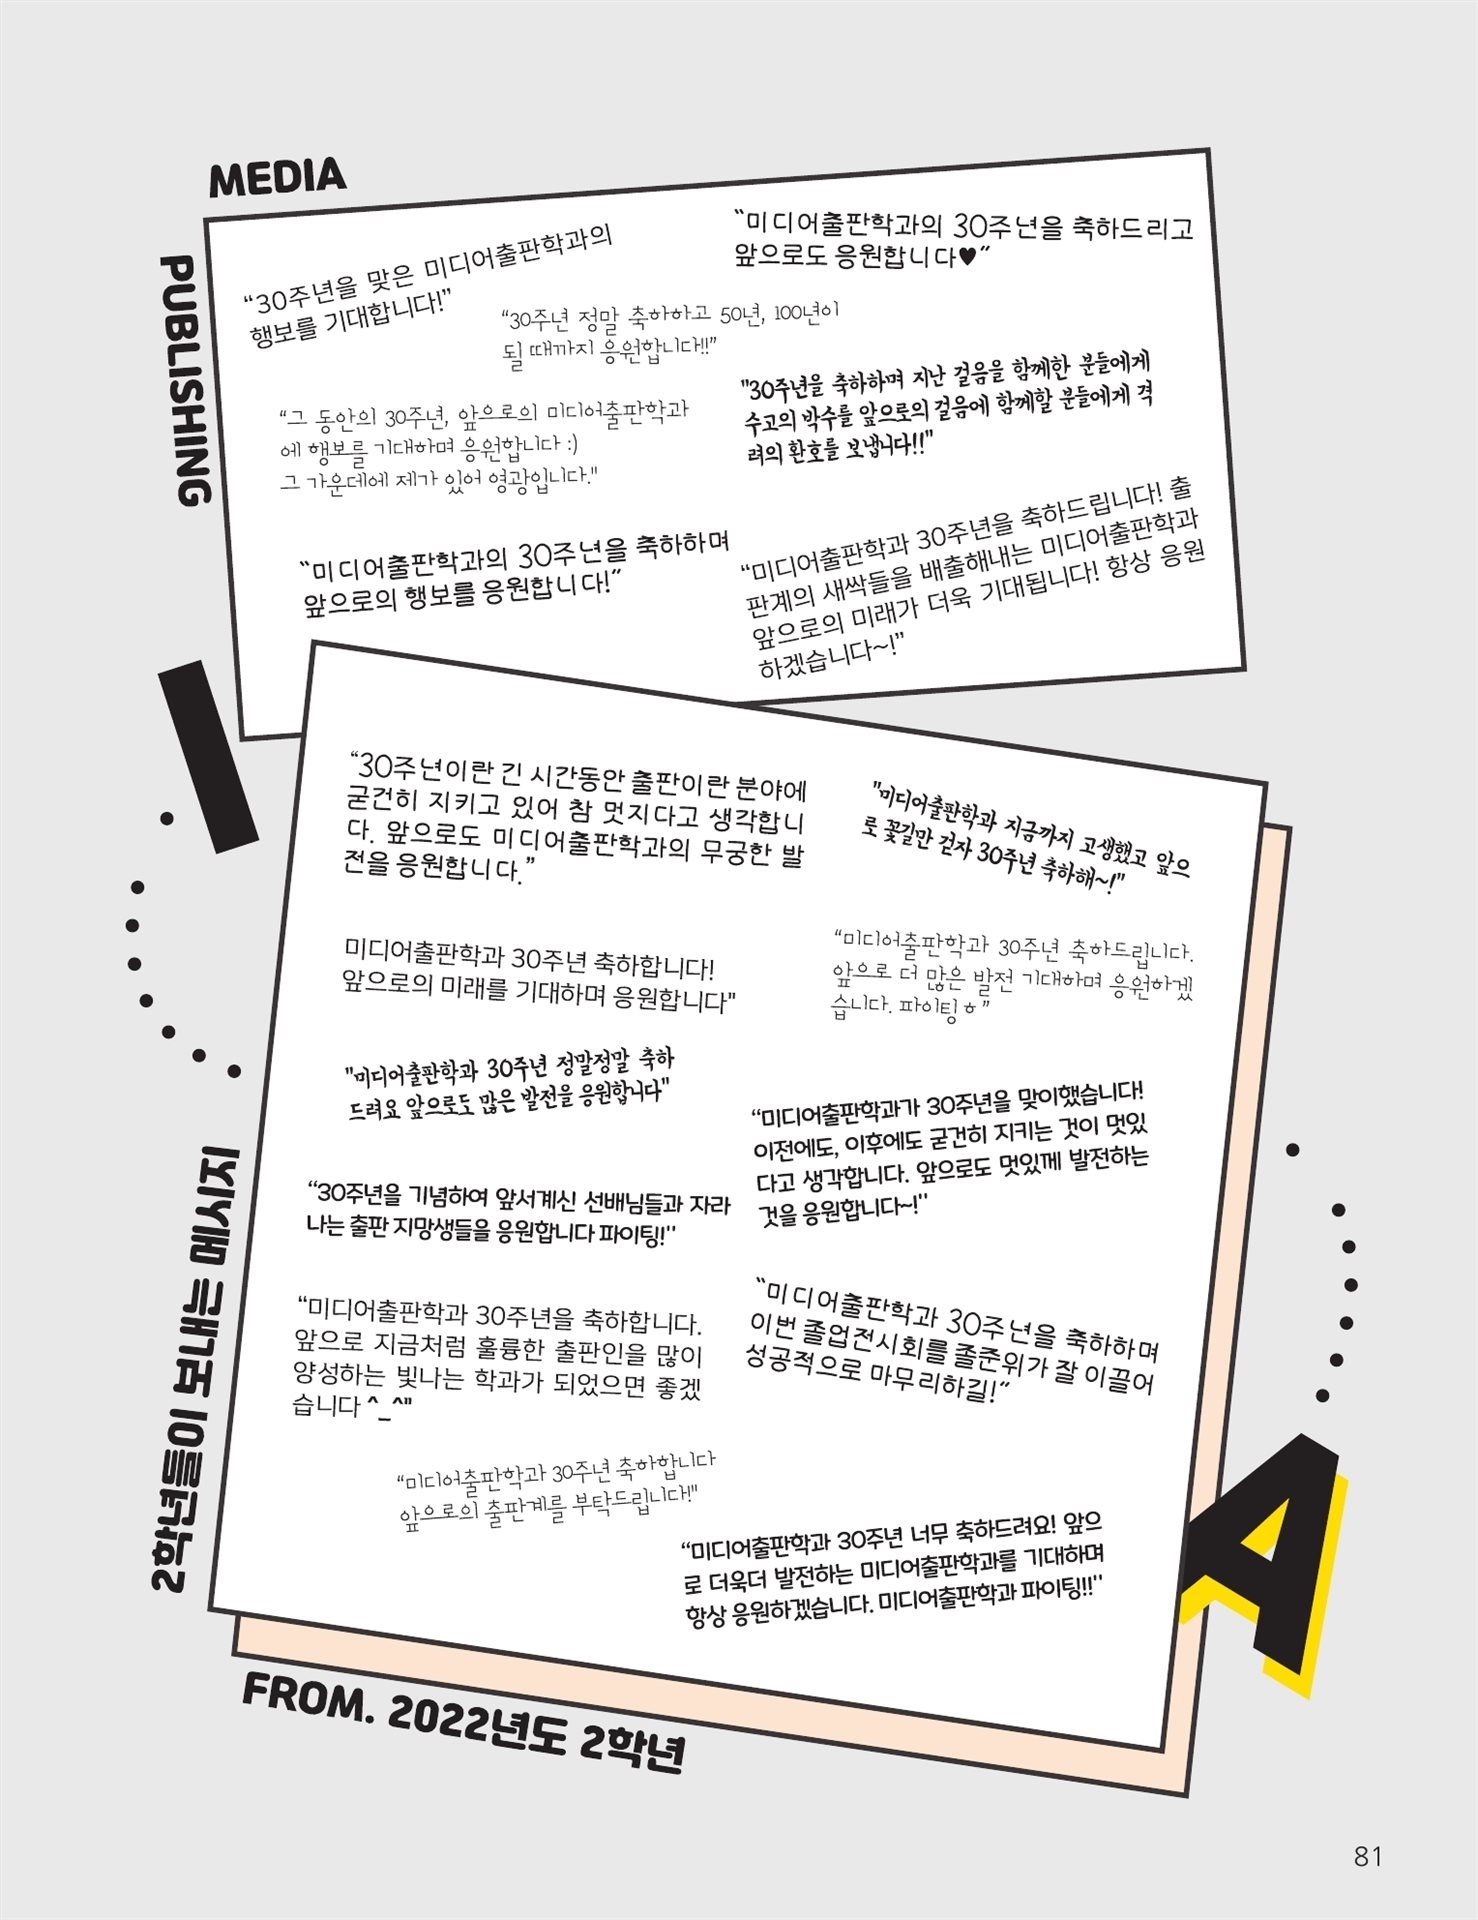 MEDIA
PUBLISHING
“30주년을 맞은 미디어출판학과의
행보를 기대합니다!”
“미디어출판학과의 30주년을 축하드리고
앞으로도 응원합니다♥”
“30주년 정말 축하하고 50년, 100년이
될 때까지 응원합니다!!”
"30주년을 축하하며 지난 걸음을 함께한 분들에게
수고의 박수를 앞으로의 걸음에 함께할 분들에게 격
려의 환호를 보냅니다!!"
“그 동안의 30주년, 앞으로의 미디어출판학과
에 행보를 기대하며 응원합니다 :)
그 가운데에 제가 있어 영광입니다."
“미디어출판학과의 30주년을 축하하며
앞으로의 행보를 응원합니다!”
“미디어출판학과 30주년을 축하드립니다! 출
판계의 새싹들을 배출해내는 미디어출판학과
앞으로의 미래가 더욱 기대됩니다! 항상 응원
하겠습니다~!”
“30주년이란 긴 시간동안 출판이란 분야에
굳건히 지키고 있어 참 멋지다고 생각합니
다. 앞으로도 미디어출판학과의 무궁한 발
전을 응원합니다.”
"미디어출판학과 지금까지 고생했고 앞으
로 꽃길만 걷자 30주년 축하해~!"
미디어출판학과 30주년 축하합니다!
앞으로의 미래를 기대하며 응원합니다"
“미디어출판학과 30주년 축하드립니다.
앞으로 더 많은 발전 기대하며 응원하겠
습니다. 파이팅ㅎ”
"미디어출판학과 30주년 정말정말 축하
드려요 앞으로도 많은 발전을 응원합니다"
“미디어출판학과가 30주년을 맞이했습니다!
이전에도, 이후에도 굳건히 지키는 것이 멋있
다고 생각합니다. 앞으로도 멋있께 발전하는
것을 응원합니다~!''
“30주년을 기념하여 앞서계신 선배님들과 자라
나는 출판 지망생들을 응원합니다 파이팅!''
“미디어출판학과 30주년을 축하하며
이번 졸업전시회를 졸준위가 잘 이끌어
성공적으로 마무리하길!”
“미디어출판학과 30주년을 축하합니다.
앞으로 지금처럼 훌륭한 출판인을 많이
양성하는 빛나는 학과가 되었으면 좋겠
습니다 ^_^"
“미디어출판학과 30주년 축하합니다
앞으로의 출판계를 부탁드립니다!"
“미디어출판학과 30주년 너무 축하드려요! 앞으
로 더욱더 발전하는 미디어출판학과를 기대하며
항상 응원하겠습니다. 미디어출판학과 파이팅!!''
2학년들이 보내는 메시지
A
FROM. 2022년도 2학년
81